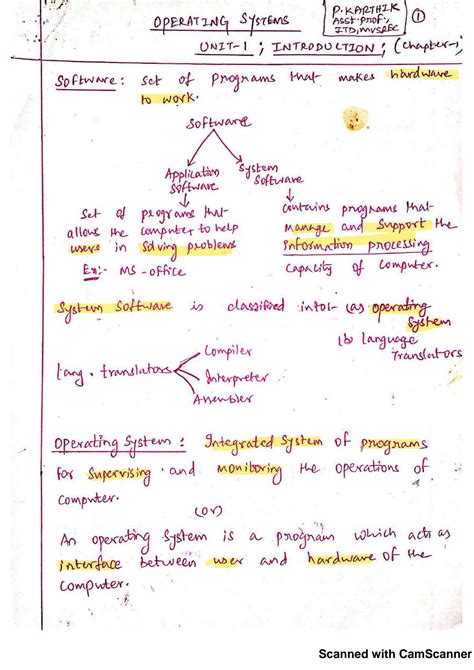 OPERATING SYSTEMS
P. KARTHIK
ASST. PROF.,
ITD, MVSREC
1
UNIT-1 ; INTRODUCTION ; (chapter-1
Software: Set of programs that makes hardware
to work.
Software
Application
Software
System
Software
Set of programs that
allows the computer to help
users in solving problems
Ex:- MS-office
contains programs that
manage and support the
information processing
capacity of computer.
System Software is classified into:- (a) operating
System
(b) language
translators
Lang. translators
Compiler
Interpreter
Assembler
Operating System : Integrated System of programs
for supervising and monitoring the operations of
computer.
(or)
An operating System is a program which acts as
interface between user and hardware of the
computer.
Scanned with CamScanner